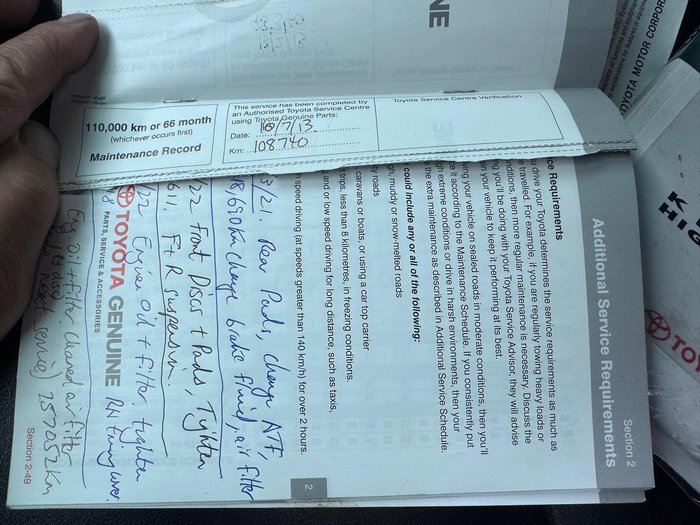 110,000 km or 66 month
(whichever occurs first)
Maintenance Record
This service has been completed by
an Authorised Toyota Service Centre
using Toyota Genuine Parts:
Date: 18/7/13
Km: 108740
Toyota Service Centre Verification
Section 2
Additional Service Requirements
ce Requirements
drive your Toyota determines the service requirements as much as
e travelled. For example, if you are regularly towing heavy loads or
nditions, then more regular maintenance is necessary. Discuss the
ng you'll be doing with your Toyota Service Advisor, they will advise
n your vehicle to keep it performing at its best.
ing your vehicle on sealed roads in moderate conditions, then you'll
e it according to the Maintenance Schedule. If you consistently put
gh extreme conditions or drive in harsh environments, then your
the extra maintenance as described in Additional Service Schedule.
could include any or all of the following:
h, muddy or snow-melted roads
ty roads
caravans or boats, or using a car top carrier
trips, less than 8 kilometres, in freezing conditions.
and or low speed driving for long distance, such as taxis,
h speed driving (at speeds greater than 140 km/h) for over 2 hours.
2
3/21. Rear Pads, change ATF,
8,690km change brake fluid, air filter
/22 Front Discs + Pads, Tighten
611, F+R suspension
/22 Engine oil + filter, tighten
RH timing cover.
TOYOTA GENUINE
PARTS, SERVICE & ACCESSORIES
Eng oil + filter cleaned air filter
next service) 257052km
Section 2-49
TOYOTA MOTOR CORPOR
TOYO